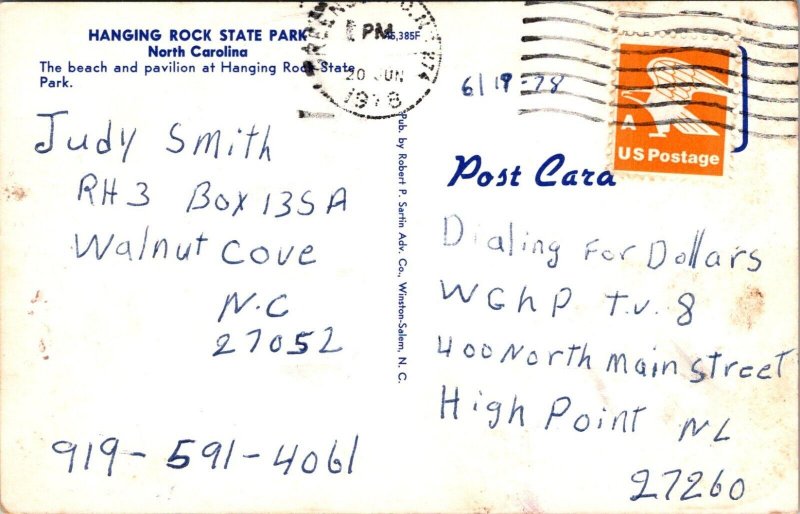 HANGING ROCK STATE PARK
North Carolina
The beach and pavilion at Hanging Rock State
Park.
PM
20 JUN
1978
6/19-78
A
US Postage
Post Card
Judy Smith
RH3 Box 135A
Walnut Cove
N.C
27052
919-591-4061
Pub. by Robert P. Sartin Adv. Co., Winston-Salem, N. C.
Dialing For Dollars
WGHP T.V. 8
400 North Main Street
High Point NC
27260